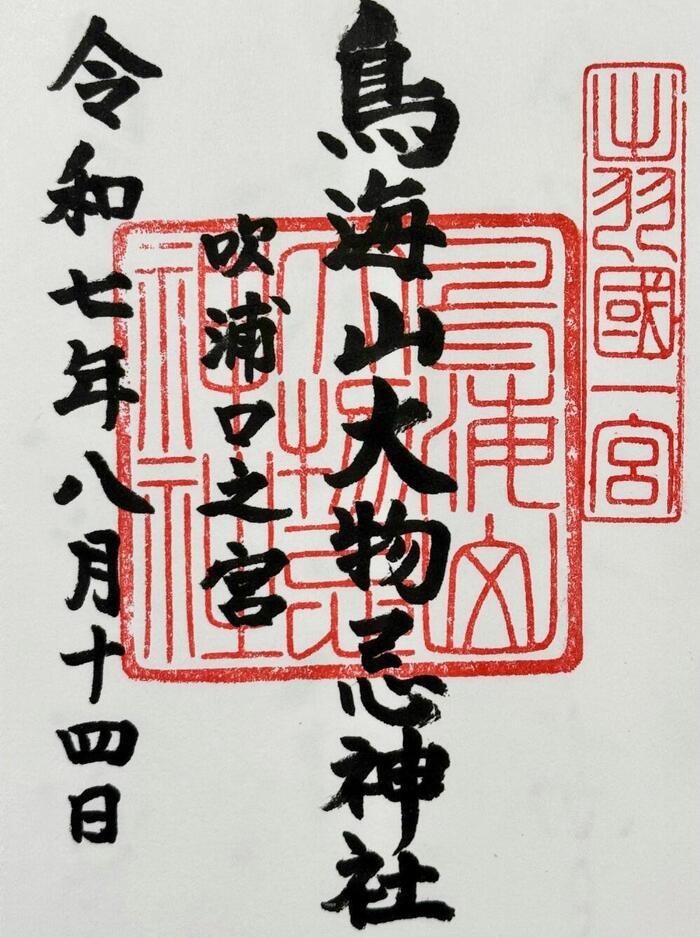 出羽國一宮
鳥海山大物忌神社
吹浦口之宮
令和七年八月十四日